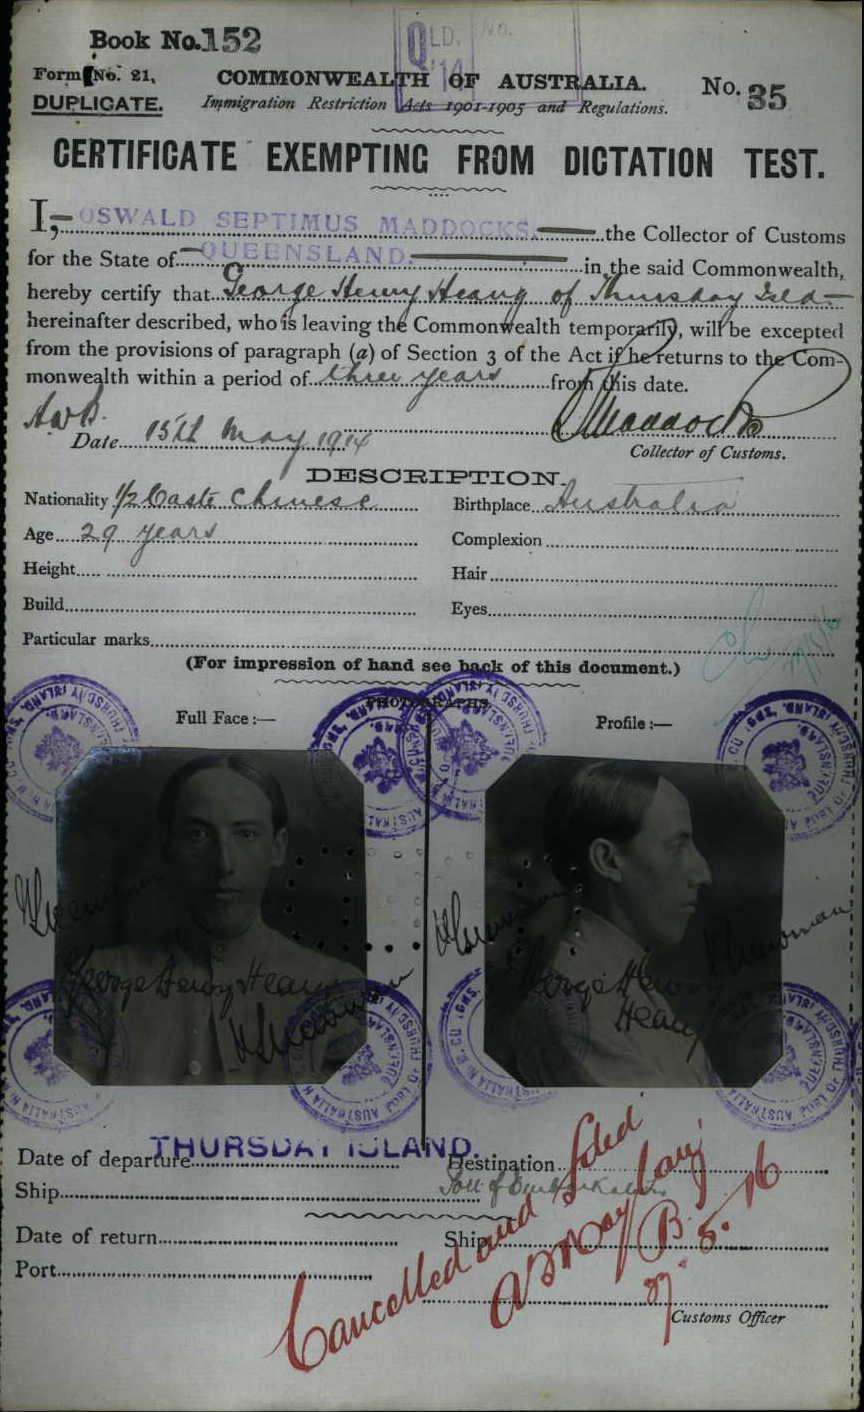 Book No. 152
QLD. No.
'14
Form No. 21.
COMMONWEALTH OF AUSTRALIA.
No. 35
DUPLICATE.
Immigration Restriction Acts 1901-1905 and Regulations.
CERTIFICATE EXEMPTING FROM DICTATION TEST.
I, OSWALD SEPTIMUS MADDOCKS, the Collector of Customs
for the State of QUEENSLAND. in the said Commonwealth,
hereby certify that George Henry Heang of Thursday Isld
hereinafter described, who is leaving the Commonwealth temporarily, will be excepted
from the provisions of paragraph (a) of Section 3 of the Act if he returns to the Com-
monwealth within a period of three years from this date.
Date 15th May 1914
Maddocks
Collector of Customs.
DESCRIPTION.
Nationality 1/2 Caste Chinese
Birthplace Australia
Age 29 years
Complexion
Height
Hair
Build
Eyes
Particular marks
(For impression of hand see back of this document.)
PHOTOGRAPHS
Full Face :—
Profile :—
George Henry Heang
George Henry
Heang
THURSDAY ISLAND.
Date of departure
Destination
Ship
Port of Embarkation
Date of return
Ship
Port
Cancelled and
27.5.16
Customs Officer